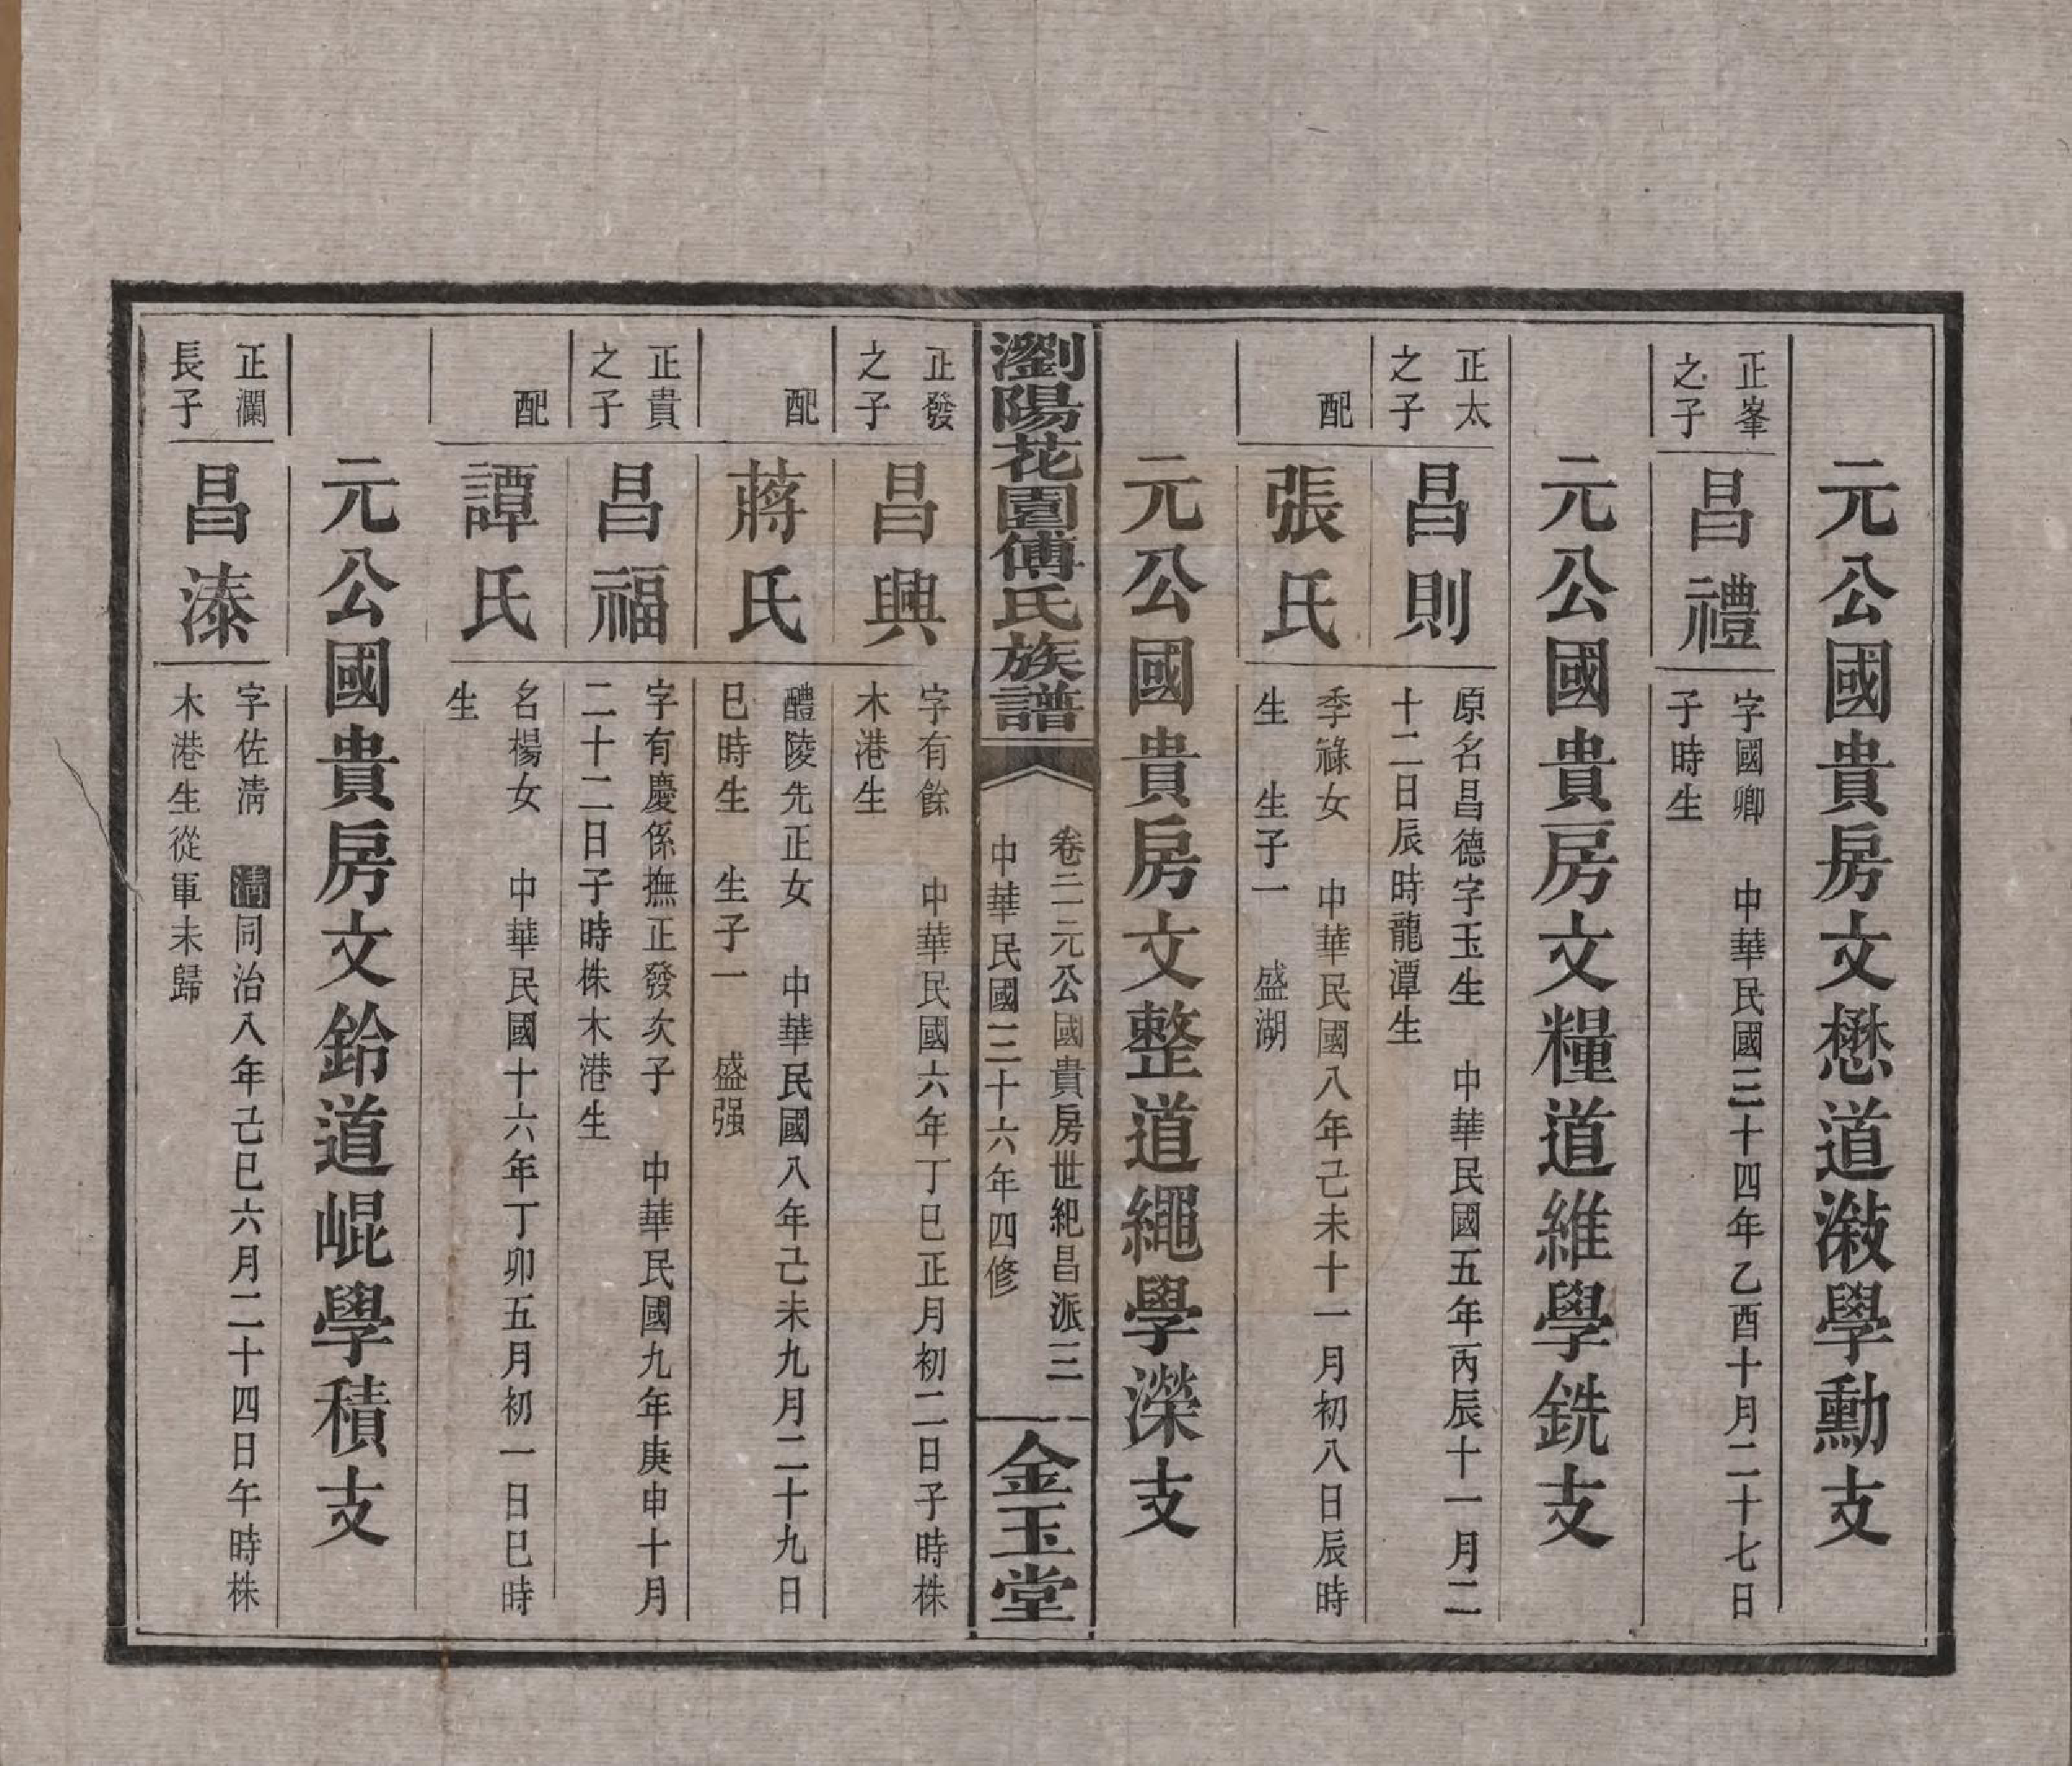 元公國貴房文懋道漵學勳支
正峯
之子
昌禮
字國卿　中華民國三十四年乙酉十月二十七日
子時生
元公國貴房文糧道維學銑支
正太
之子
昌則
原名昌德字玉生　中華民國五年丙辰十一月二
十二日辰時龍潭生
配
張氏
季祿女　中華民國八年己未十一月初八日辰時
生　生子一　盛湖
元公國貴房文整道繩學濼支
瀏陽花園傅氏族譜
卷二元公國貴房世紀昌派三
中華民國三十六年四修
金玉堂
正發
之子
昌興
字有餘　中華民國六年丁巳正月初二日子時株
木港生
配
蔣氏
醴陵先正女　中華民國八年己未九月二十九日
巳時生　生子一　盛强
正貴
之子
昌福
字有慶係撫正發次子　中華民國九年庚申十月
二十二日子時株木港生
配
譚氏
名楊女　中華民國十六年丁卯五月初一日巳時
生
元公國貴房文鈴道崐學積支
正瀾
長子
昌溙
字佐淸　淸同治八年己巳六月二十四日午時株
木港生從軍未歸